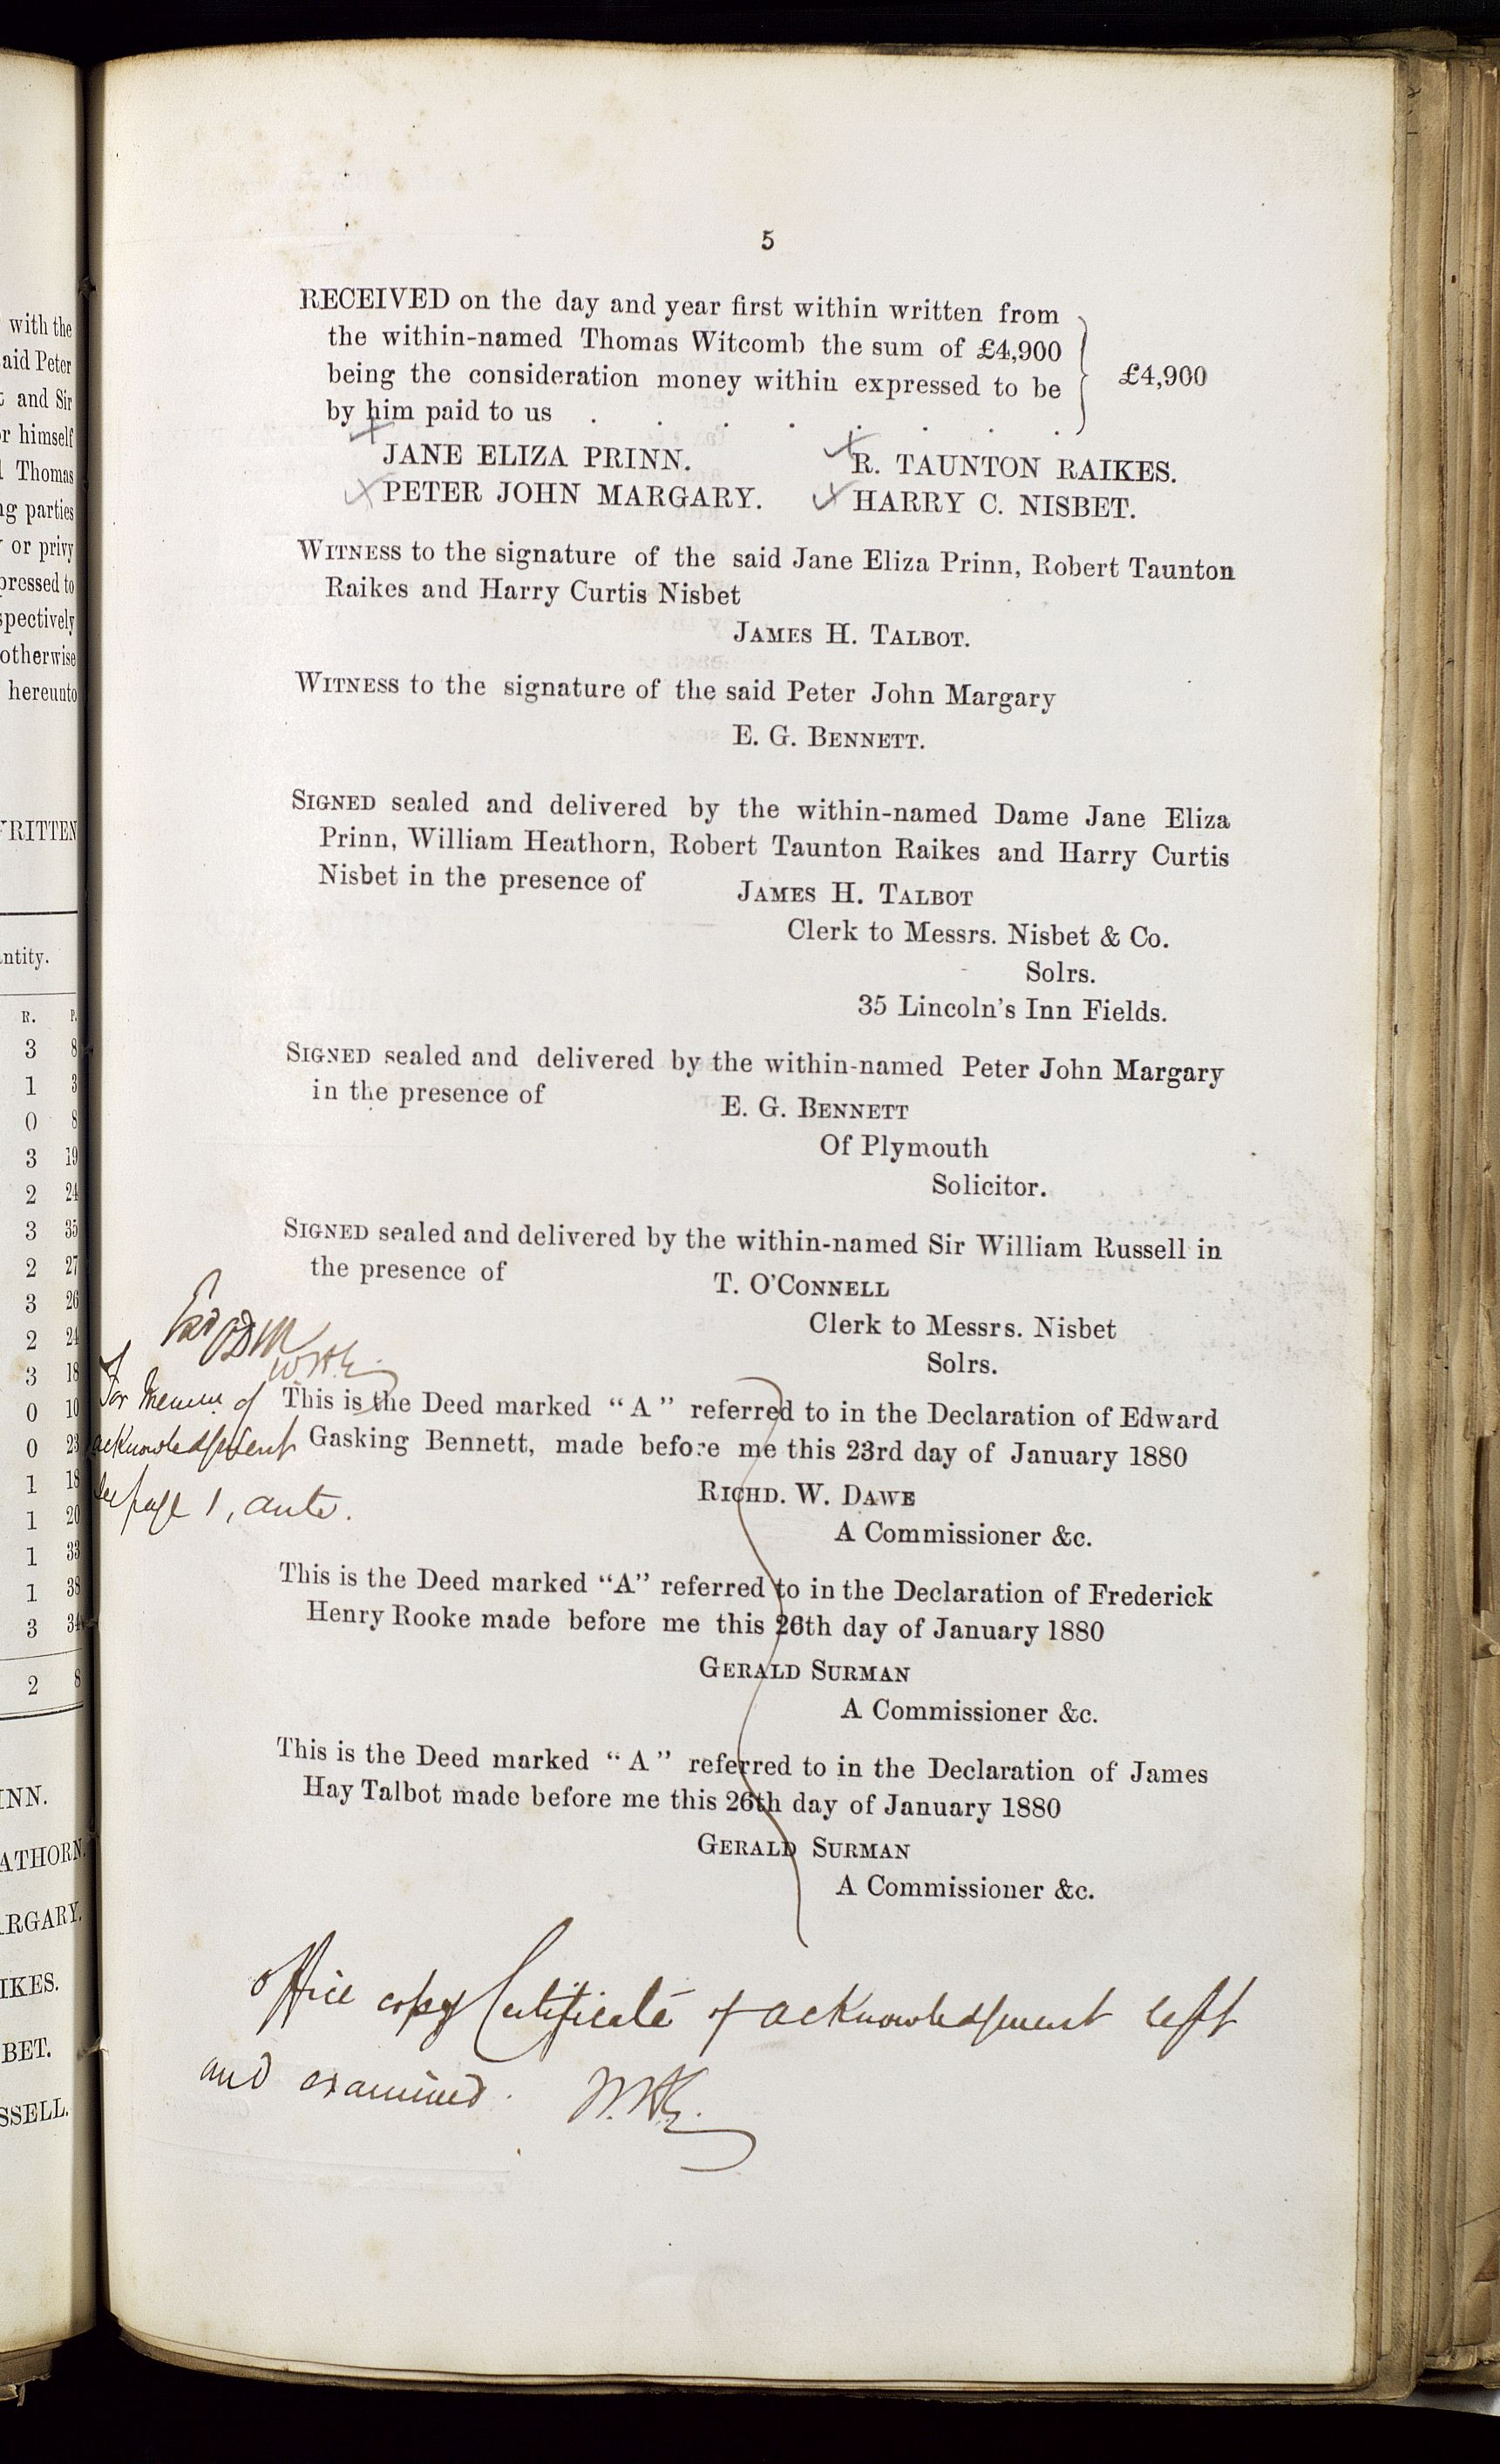 5
RECEIVED on the day and year first within written from
the within-named Thomas Witcomb the sum of £4,900
being the consideration money within expressed to be
by him paid to us . . . . . . . .
£4,900
JANE ELIZA PRINN. R. TAUNTON RAIKES.
PETER JOHN MARGARY. HARRY C. NISBET.
WITNESS to the signature of the said Jane Eliza Prinn, Robert Taunton
Raikes and Harry Curtis Nisbet
JAMES H. TALBOT.
WITNESS to the signature of the said Peter John Margary
E. G. BENNETT.
SIGNED sealed and delivered by the within-named Dame Jane Eliza
Prinn, William Heathorn, Robert Taunton Raikes and Harry Curtis
Nisbet in the presence of
JAMES H. TALBOT
Clerk to Messrs. Nisbet & Co.
Solrs.
35 Lincoln's Inn Fields.
SIGNED sealed and delivered by the within-named Peter John Margary
in the presence of
E. G. BENNETT
Of Plymouth
Solicitor.
SIGNED sealed and delivered by the within-named Sir William Russell in
the presence of
T. O'CONNELL
Clerk to Messrs. Nisbet
Solrs.
For Memm of
acknowledgment
see page 1, ante.
This is the Deed marked "A" referred to in the Declaration of Edward
Gasking Bennett, made before me this 23rd day of January 1880
RICHD. W. DAWE
A Commissioner &c.
This is the Deed marked "A" referred to in the Declaration of Frederick
Henry Rooke made before me this 26th day of January 1880
GERALD SURMAN
A Commissioner &c.
This is the Deed marked "A" referred to in the Declaration of James
Hay Talbot made before me this 26th day of January 1880
GERALD SURMAN
A Commissioner &c.
Office copy Certificate of acknowledgment left
and examined.
with the
aid Peter
and Sir
r himself
Thomas
ng parties
or privy
pressed to
spectively
otherwise
hereunto
RITTEN
ntity.
R. P.
3 8
1 3
0 8
3 19
2 24
3 35
2 27
3 26
2 24
3 18
0 10
0 23
1 18
1 20
1 33
1 38
3 34
2 8
INN.
ATHORN.
RGARY.
IKES.
BET.
SSELL.